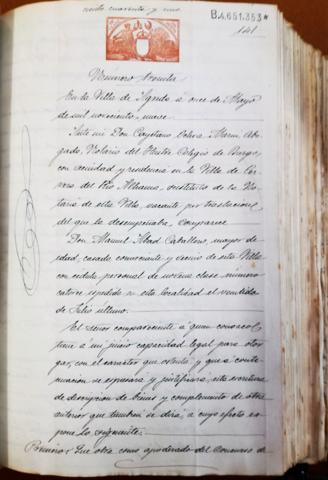 ciento cuarenta y uno
B.4,651,353*
141
Número treinta
En la Villa de Agreda a once de Mayo
de mil novecientos nueve.
Ante mi Don Cayetano Ochoa Marin, Abo-
gado, Notario del Ilustre Colegio de Burgos,
con vecindad y residencia en la Villa de Cer-
vera del Rio Alhama, sustituto de la No-
taria de esta Villa, vacante por traslacion
del que la desempeñaba, comparece
Don Manuel Abad Caballero, mayor de
edad, casado, comerciante y vecino de esta Villa
con cedula personal de novena clase número
catorce expedida en esta localidad el veintidos
de Julio ultimo.
El señor compareciente a quien conozco
tiene a mi juicio capacidad legal para otor-
gar, con el caracter que ostenta y que a conti-
nuacion se expresará y justificará, esta escritura
de descripcion de bienes y complemento de otra
anterior que tambien se dirá, a cuyo efecto ex-
pone lo siguiente:
Primero: Que obra como apoderado del Concurso de